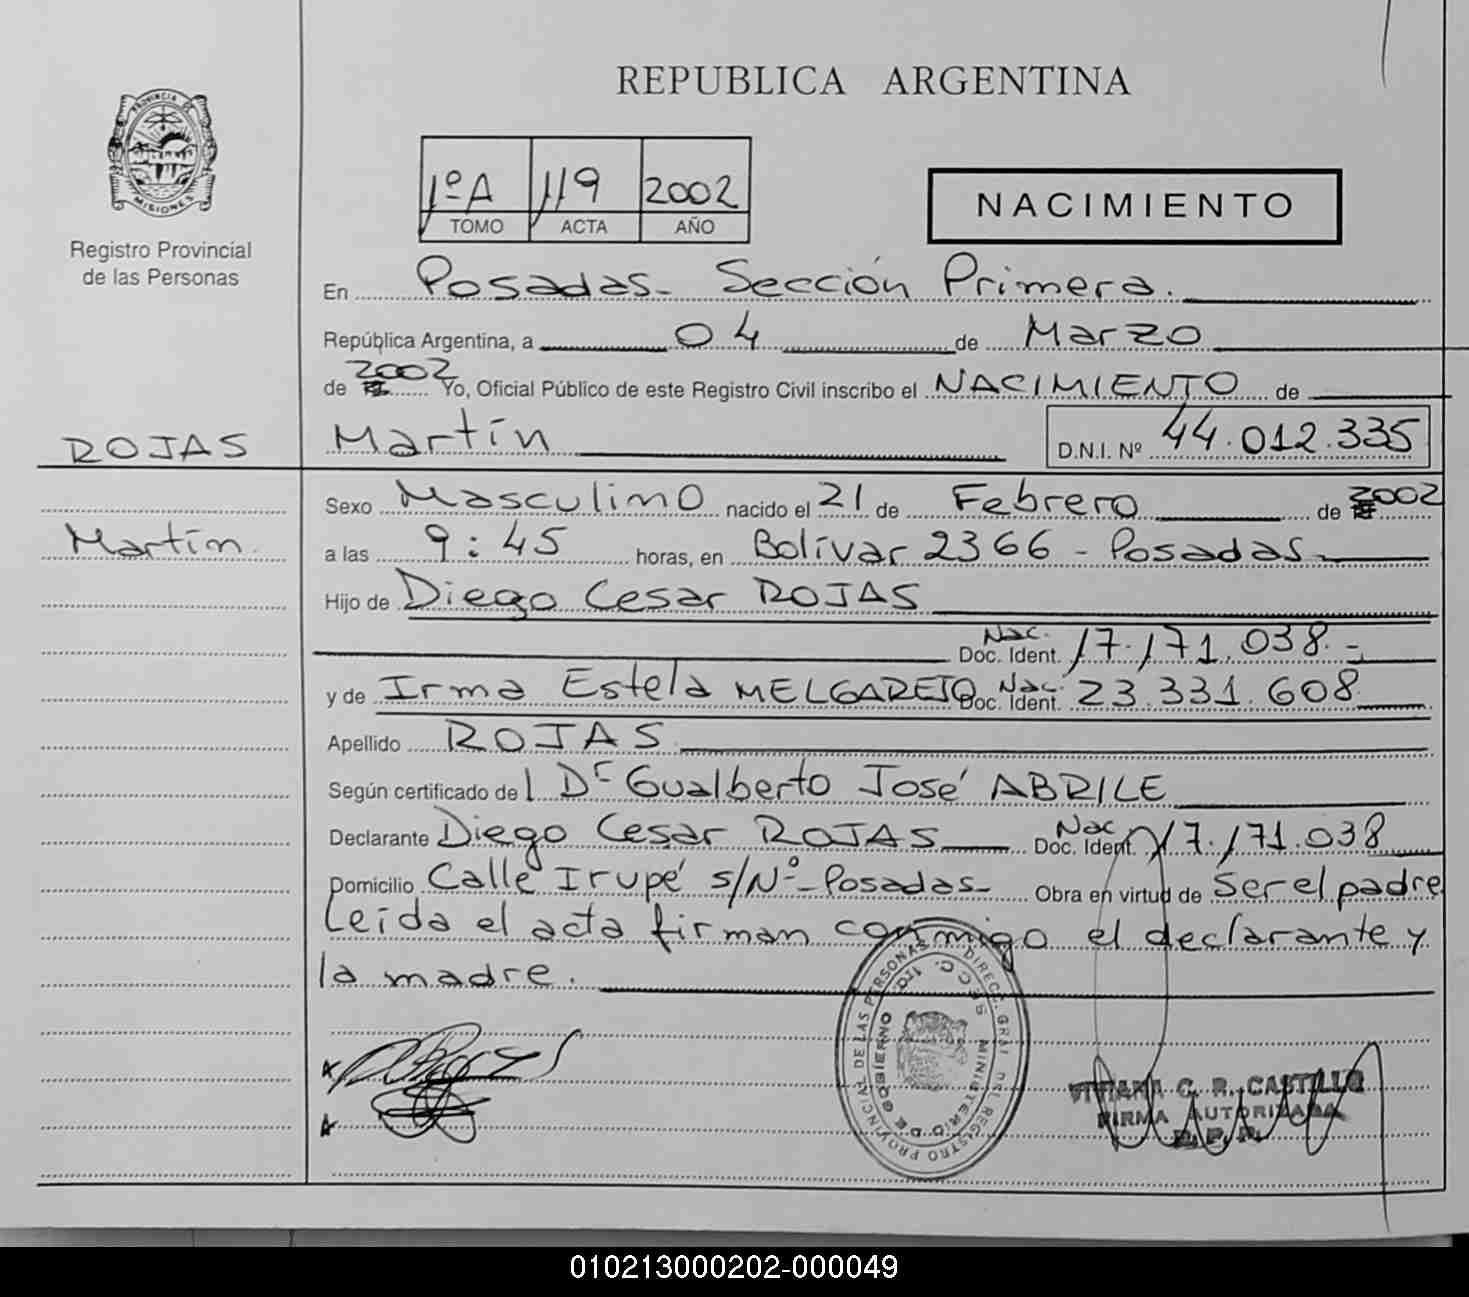 REPUBLICA ARGENTINA
PROVINCIA DE
MISIONES
Registro Provincial
de las Personas
1º A 119 2002
TOMO ACTA AÑO
NACIMIENTO
En Posadas - Sección Primera.
República Argentina, a 04 de Marzo
de 2002 Yo, Oficial Público de este Registro Civil inscribo el NACIMIENTO de
ROJAS Martín D.N.I. Nº 44.012.335
Sexo Masculino nacido el 21 de Febrero de 2002
Martín. a las 9:45 horas, en Bolívar 2366 - Posadas -
Hijo de Diego Cesar ROJAS
Nac.
Doc. Ident. 17.171.038.-
y de Irma Estela MELGAREJO Doc. Ident. Nac. 23.331.608
Apellido ROJAS
Según certificado del Dr Gualberto José ABRILE
Declarante Diego Cesar ROJAS Doc. Ident. Nac 17.171.038
Domicilio Calle Irupé s/Nº - Posadas - Obra en virtud de ser el padre
Leída el acta firman conmigo el declarante y
la madre.
DIRECC. GRAL. DEL REGISTRO PROVINCIAL DE LAS PERSONAS
MINISTERIO DE GOBIERNO
SECC. 1ra
VIVIANA G. R. CASTILLO
FIRMA AUTORIZADA
R. P. P.
010213000202-000049